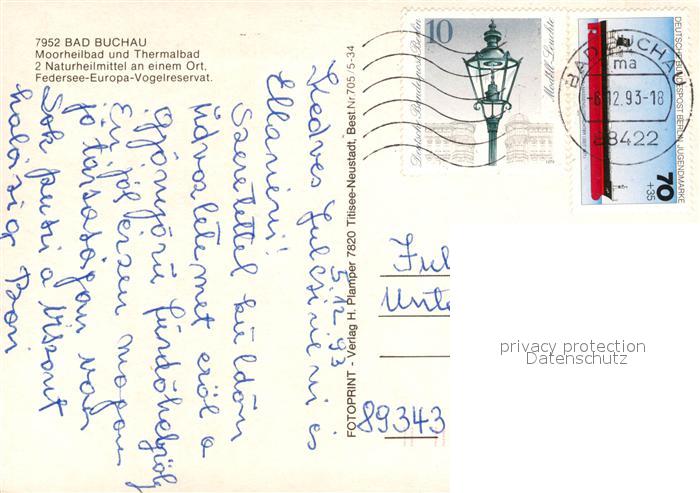 7952 BAD BUCHAU
Moorheilbad und Thermalbad
2 Naturheilmittel an einem Ort,
Federsee-Europa-Vogelreservat.
5.12.93
Kedves Julcsi néni és
Elláneni!
Szeretettel küldöm
üdvözletemet erről a
gyönyörű fürdőhelyről
Én jól érzem magam
jó társaságom van
Sok puszi a viszont
halásig Bori
FOTOPRINT - Verlag H. Plamper 7820 Titisee-Neustadt, Best.Nr. 705/5-34
10
Deutsche Bundespost Berlin
Modell-Leuchte
DEUTSCHE BUNDESPOST BERLIN JUGENDMARKE
70
+35
BAD BUCHAU
ma
-6.12.93-18
88422
Jul
Unte
89343
privacy protection
Datenschutz